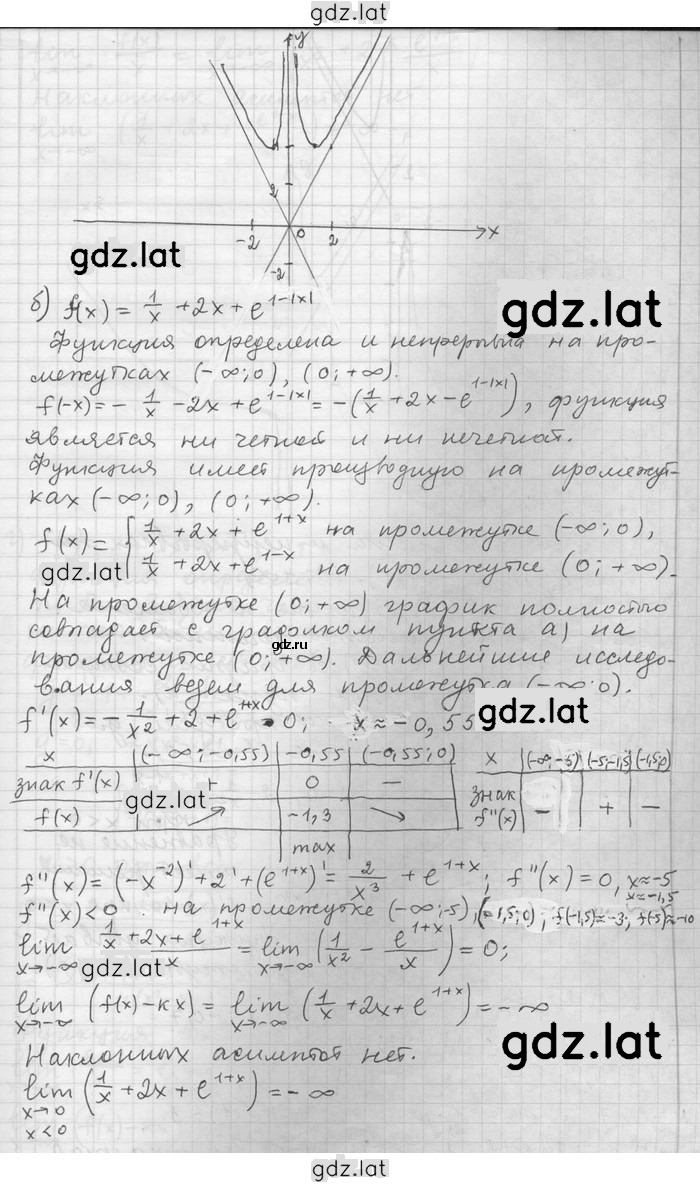 gdz.lat
y
2
-2
0
2
x
-2
gdz.lat
gdz.lat
б) f(x) = 1/x + 2x + e^(1-|x|)
Функция определена и непрерывна на про-
межутках (-∞; 0), (0; +∞).
f(-x) = - 1/x - 2x + e^(1-|x|) = -(1/x + 2x - e^(1-|x|)), функция
является ни четной и ни нечетной.
Функция имеет производную на промежут-
ках (-∞; 0), (0; +∞).
f(x) = { 1/x + 2x + e^(1+x) на промежутке (-∞; 0),
1/x + 2x + e^(1-x) на промежутке (0; +∞).
gdz.lat
На промежутке (0; +∞) график полностью
совпадает с графиком пункта а) на
gdz.ru
промежутке (0; +∞). Дальнейшие исследо-
вания ведем для промежутка (-∞; 0).
f'(x) = - 1/x² + 2 + e^(1+x) = 0; x ≈ -0,55
x (-∞; -0,55) -0,55 (-0,55; 0)
знак f'(x) + 0 -
f(x) ↗ ~1,3 ↘
max
gdz.lat
x (-∞; -5) (-5; -1,5) (-1,5; 0)
знак f''(x) - + -
f''(x) = (-x^(-2))' + 2' + (e^(1+x))' = 2/x³ + e^(1+x); f''(x) = 0, x ≈ -5
x ≈ -1,5
f''(x) < 0 на промежутке (-∞; -5), (-1,5; 0); f(-1,5) ≈ -3; f(-5) ≈ -10
lim x→-∞ (1/x + 2x + e^(1+x))/x = lim x→-∞ (1/x² - e^(1+x)/x) = 0;
gdz.lat
lim x→-∞ (f(x) - kx) = lim x→-∞ (1/x + 2x + e^(1+x)) = -∞
Наклонных асимптот нет.
gdz.lat
lim x→0 x<0 (1/x + 2x + e^(1+x)) = -∞
gdz.lat